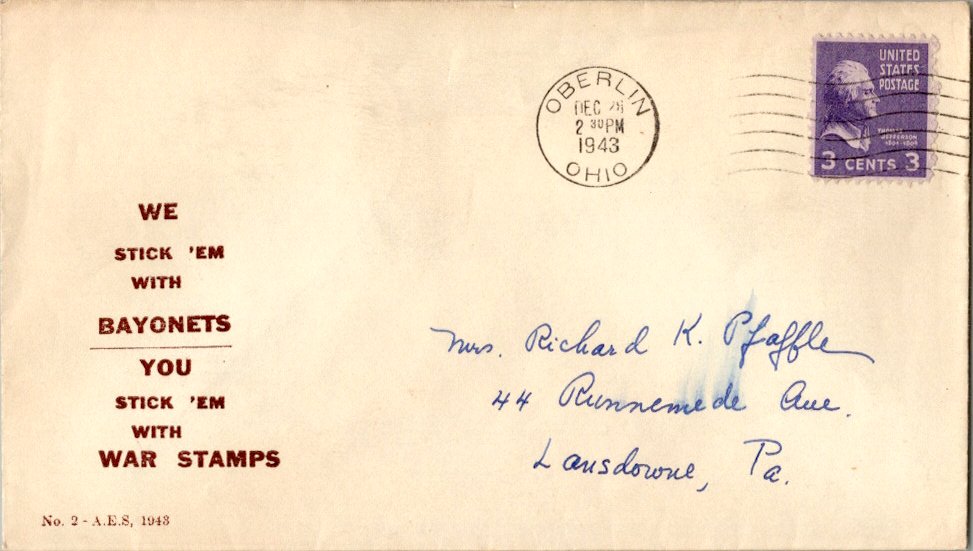 OBERLIN
DEC 28
2 30PM
1943
OHIO
UNITED
STATES
POSTAGE
THOMAS
JEFFERSON
1801-1809
3 CENTS 3
WE
STICK 'EM
WITH
BAYONETS
YOU
STICK 'EM
WITH
WAR STAMPS
Mrs. Richard K. Pfaffle
44 Runnemede Ave.
Lansdowne, Pa.
No. 2 - A.E.S, 1943